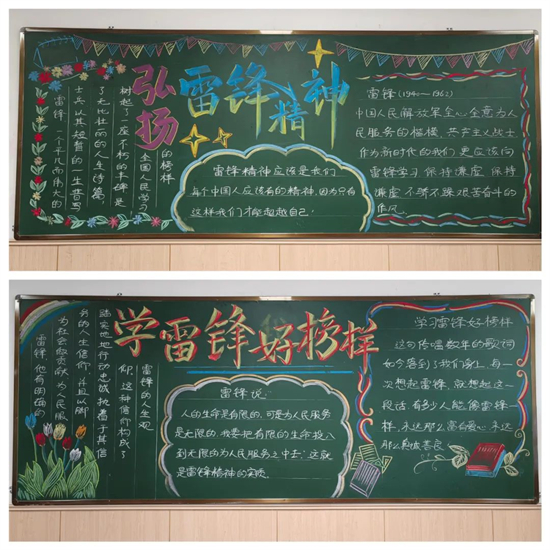 弘扬
雷锋精神
雷锋,一个平凡而伟大的
士兵以其短暂的一生谱写
了无比壮丽的人生诗篇,
树起了一座不朽的丰碑,是
全国人民学习
的榜样
雷锋精神应该是我们
每个中国人应该有的精神,因为只有
这样我们才能超越自己.
雷锋(1940—1962)
中国人民解放军全心全意为人
民服务的楷模,共产主义战士
作为新时代的我们更应该向
雷锋学习保持谦虚,保持
谦虚,不骄不躁艰苦奋斗的
作风.
学雷锋好榜样
雷锋,他有明确的
为社会做贡献,为人民服
务的人生信仰,并且以脚
踏实地地行动忠诚执着于其信
仰,这种信仰构成了
雷锋的人生观
雷锋说:
人的生命是有限的,可是为人民服务
是无限的,我要把有限的生命投入
到无限的为人民服务之中去,这就
是雷锋精神的实质.
学习雷锋好榜样
这句传唱数年的歌词
如今落到了我们身上,每一
次想起雷锋,就想起这一
段话,有多少人能像雷锋一
样,永远那么富有爱心,永远
那么真诚善良